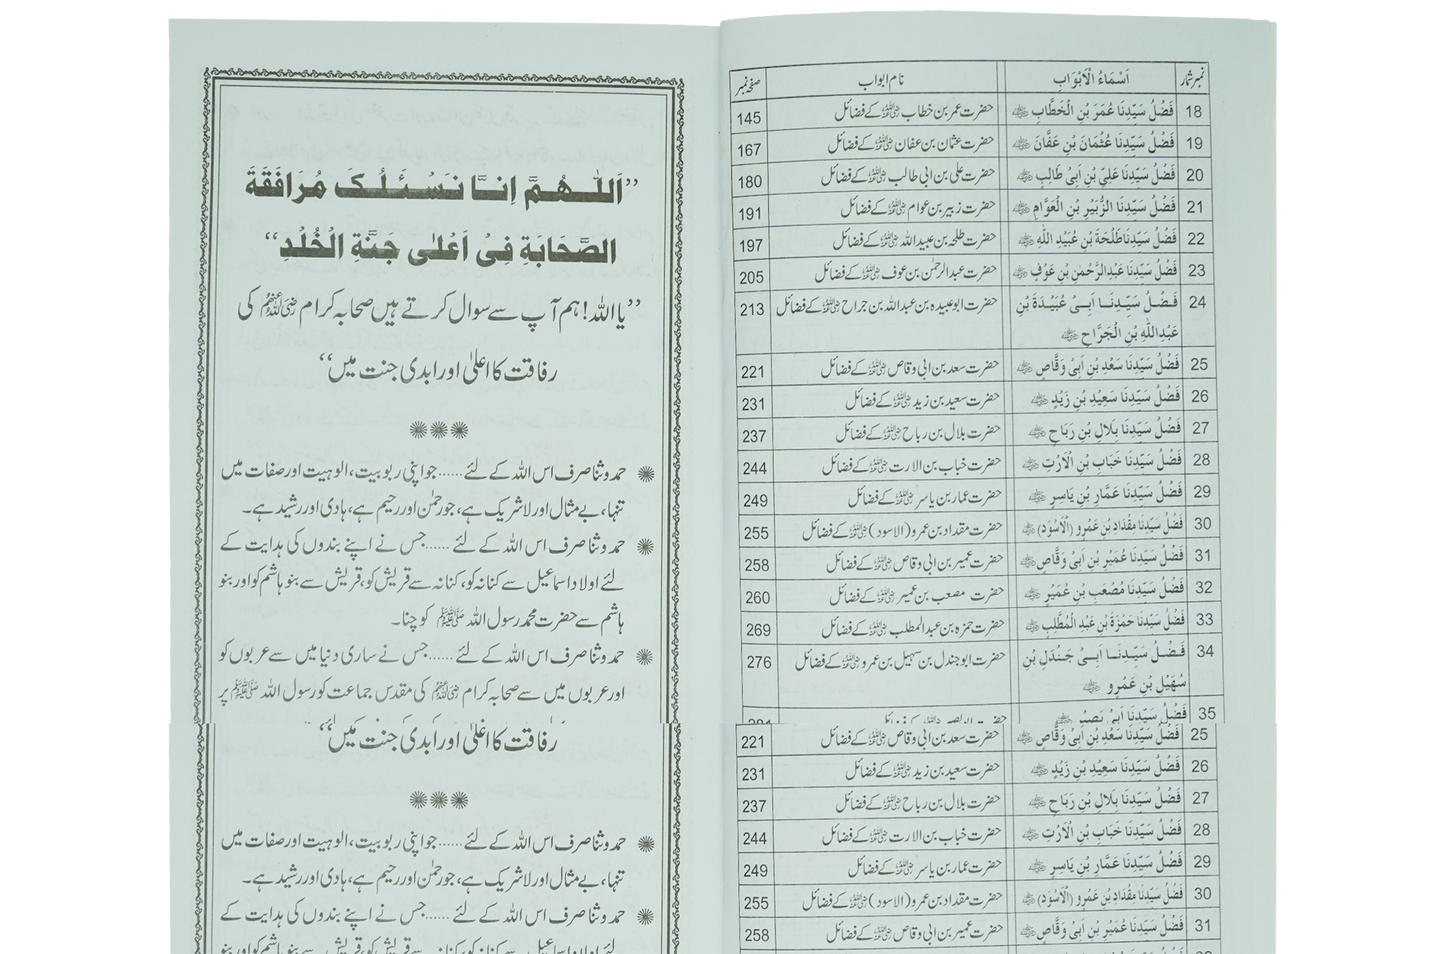 ”اَللّٰهُمَّ اِنَّا نَسْـَٔلُکَ مُرَافَقَةَ
الصَّحَابَةِ فِیْ اَعْلٰی جَنَّةِ الْخُلْدِ“
”یا اللہ! ہم آپ سے سوال کرتے ہیں صحابہ کرام رضی اللہ عنہم کی
رفاقت کا اعلیٰ اور ابدی جنت میں“
حمد وثنا صرف اس اللہ کے لئے ...... جو اپنی ربوبیت، الوہیت اور صفات میں
تنہا، بے مثال اور لا شریک ہے، جو رحمٰن اور رحیم ہے، ہادی اور رشید ہے۔
حمد وثنا صرف اس اللہ کے لئے ...... جس نے اپنے بندوں کی ہدایت کے
لئے اولاد اسماعیل سے کنانہ کو، کنانہ سے قریش کو، قریش سے بنو ہاشم کو اور بنو
ہاشم سے حضرت محمد رسول اللہ ﷺ کو چنا۔
حمد وثنا صرف اس اللہ کے لئے ...... جس نے ساری دنیا میں سے عربوں کو
اور عربوں میں سے صحابہ کرام رضی اللہ عنہم کی مقدس جماعت کو رسول اللہ ﷺ پر
رفاقت کا اعلیٰ اور ابدی جنت میں“
حمد وثنا صرف اس اللہ کے لئے ...... جو اپنی ربوبیت، الوہیت اور صفات میں
تنہا، بے مثال اور لا شریک ہے، جو رحمٰن اور رحیم ہے، ہادی اور رشید ہے۔
حمد وثنا صرف اس اللہ کے لئے ...... جس نے اپنے بندوں کی ہدایت کے
لئے اولاد اسماعیل سے کنانہ کو، کنانہ سے قریش کو، قریش سے بنو ہاشم کو اور بنو
نمبر شمار اَسْمَاءُ الْاَبْوَابِ نام ابواب صفحہ نمبر
18 فَضْلُ سَیِّدِنَا عُمَرَ بْنِ الْخَطَّابِ رضی اللہ عنہ حضرت عمر بن خطاب رضی اللہ عنہ کے فضائل 145
19 فَضْلُ سَیِّدِنَا عُثْمَانَ بْنِ عَفَّانَ رضی اللہ عنہ حضرت عثمان بن عفان رضی اللہ عنہ کے فضائل 167
20 فَضْلُ سَیِّدِنَا عَلِیِّ بْنِ اَبِیْ طَالِبٍ رضی اللہ عنہ حضرت علی بن ابی طالب رضی اللہ عنہ کے فضائل 180
21 فَضْلُ سَیِّدِنَا الزُّبَیْرِ بْنِ الْعَوَّامِ رضی اللہ عنہ حضرت زبیر بن عوام رضی اللہ عنہ کے فضائل 191
22 فَضْلُ سَیِّدِنَا طَلْحَةَ بْنِ عُبَیْدِ اللّٰهِ رضی اللہ عنہ حضرت طلحہ بن عبید اللہ رضی اللہ عنہ کے فضائل 197
23 فَضْلُ سَیِّدِنَا عَبْدِالرَّحْمٰنِ بْنِ عَوْفٍ رضی اللہ عنہ حضرت عبدالرحمٰن بن عوف رضی اللہ عنہ کے فضائل 205
24 فَضْلُ سَیِّدِنَا اَبِیْ عُبَیْدَةَ بْنِ حضرت ابوعبیدہ بن عبداللہ بن جراح رضی اللہ عنہ کے فضائل 213
عَبْدِاللّٰهِ بْنِ الْجَرَّاحِ رضی اللہ عنہ
25 فَضْلُ سَیِّدِنَا سَعْدِ بْنِ اَبِیْ وَقَّاصٍ رضی اللہ عنہ حضرت سعد بن ابی وقاص رضی اللہ عنہ کے فضائل 221
26 فَضْلُ سَیِّدِنَا سَعِیْدِ بْنِ زَیْدٍ رضی اللہ عنہ حضرت سعید بن زید رضی اللہ عنہ کے فضائل 231
27 فَضْلُ سَیِّدِنَا بَلَالِ بْنِ رَبَاحٍ رضی اللہ عنہ حضرت بلال بن رباح رضی اللہ عنہ کے فضائل 237
28 فَضْلُ سَیِّدِنَا خَبَابِ بْنِ الْاَرَتِّ رضی اللہ عنہ حضرت خباب بن الارت رضی اللہ عنہ کے فضائل 244
29 فَضْلُ سَیِّدِنَا عَمَّارِ بْنِ یَاسِرٍ رضی اللہ عنہ حضرت عمار بن یاسر رضی اللہ عنہ کے فضائل 249
30 فَضْلُ سَیِّدِنَا مِقْدَادِ بْنِ عَمْرٍو (الْاَسْوَدِ) رضی اللہ عنہ حضرت مقداد بن عمرو (الاسود) رضی اللہ عنہ کے فضائل 255
31 فَضْلُ سَیِّدِنَا عُمَیْرِ بْنِ اَبِیْ وَقَّاصٍ رضی اللہ عنہ حضرت عمیر بن ابی وقاص رضی اللہ عنہ کے فضائل 258
32 فَضْلُ سَیِّدِنَا مُصْعَبِ بْنِ عُمَیْرٍ رضی اللہ عنہ حضرت مصعب بن عمیر رضی اللہ عنہ کے فضائل 260
33 فَضْلُ سَیِّدِنَا حَمْزَةَ بْنِ عَبْدِ الْمُطَّلِبِ رضی اللہ عنہ حضرت حمزہ بن عبدالمطلب رضی اللہ عنہ کے فضائل 269
34 فَضْلُ سَیِّدِنَا اَبِیْ جَنْدَلِ بْنِ حضرت ابوجندل بن سہیل بن عمرو رضی اللہ عنہ کے فضائل 276
سُهَیْلِ بْنِ عَمْرٍو رضی اللہ عنہ
35 فَضْلُ سَیِّدِنَا اَبِیْ بَصِیْرٍ
25 فَضْلُ سَیِّدِنَا سَعْدِ بْنِ اَبِیْ وَقَّاصٍ رضی اللہ عنہ حضرت سعد بن ابی وقاص رضی اللہ عنہ کے فضائل 221
26 فَضْلُ سَیِّدِنَا سَعِیْدِ بْنِ زَیْدٍ رضی اللہ عنہ حضرت سعید بن زید رضی اللہ عنہ کے فضائل 231
27 فَضْلُ سَیِّدِنَا بَلَالِ بْنِ رَبَاحٍ رضی اللہ عنہ حضرت بلال بن رباح رضی اللہ عنہ کے فضائل 237
28 فَضْلُ سَیِّدِنَا خَبَابِ بْنِ الْاَرَتِّ رضی اللہ عنہ حضرت خباب بن الارت رضی اللہ عنہ کے فضائل 244
29 فَضْلُ سَیِّدِنَا عَمَّارِ بْنِ یَاسِرٍ رضی اللہ عنہ حضرت عمار بن یاسر رضی اللہ عنہ کے فضائل 249
30 فَضْلُ سَیِّدِنَا مِقْدَادِ بْنِ عَمْرٍو (الْاَسْوَدِ) رضی اللہ عنہ حضرت مقداد بن عمرو (الاسود) رضی اللہ عنہ کے فضائل 255
31 فَضْلُ سَیِّدِنَا عُمَیْرِ بْنِ اَبِیْ وَقَّاصٍ رضی اللہ عنہ حضرت عمیر بن ابی وقاص رضی اللہ عنہ کے فضائل 258